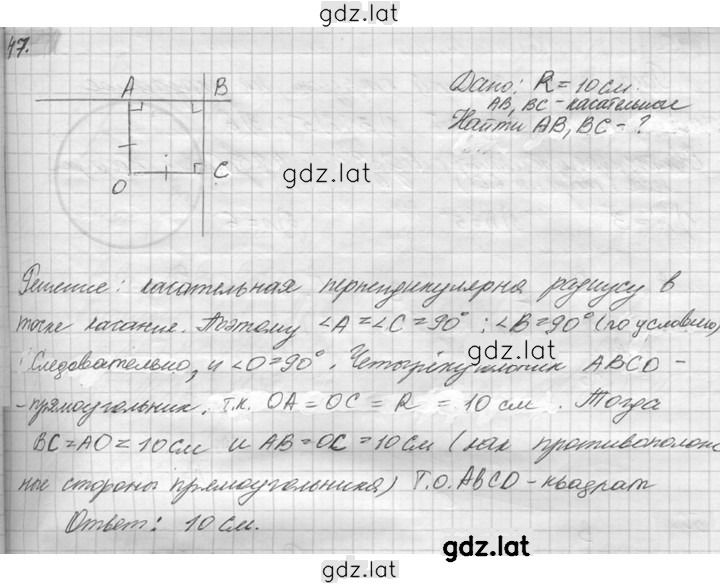 gdz.lat
47.
A B
Дано: R = 10 см.
AB, BC - касательные
Найти AB, BC - ?
O C
gdz.lat
Решение: касательная перпендикулярна радиусу в
точке касание. Поэтому ∠A = ∠C = 90°; ∠B = 90° (по условию)
Следовательно, и ∠O = 90°. Четырёхугольник ABCO -
gdz.lat
- прямоугольник, т.к. OA = OC = R = 10 см. Тогда
BC = AO = 10 см и AB = OC = 10 см (как противополож
ные стороны прямоугольника) Т.О. ABCO - квадрат
Ответ: 10 см.
gdz.lat
gdz.lat